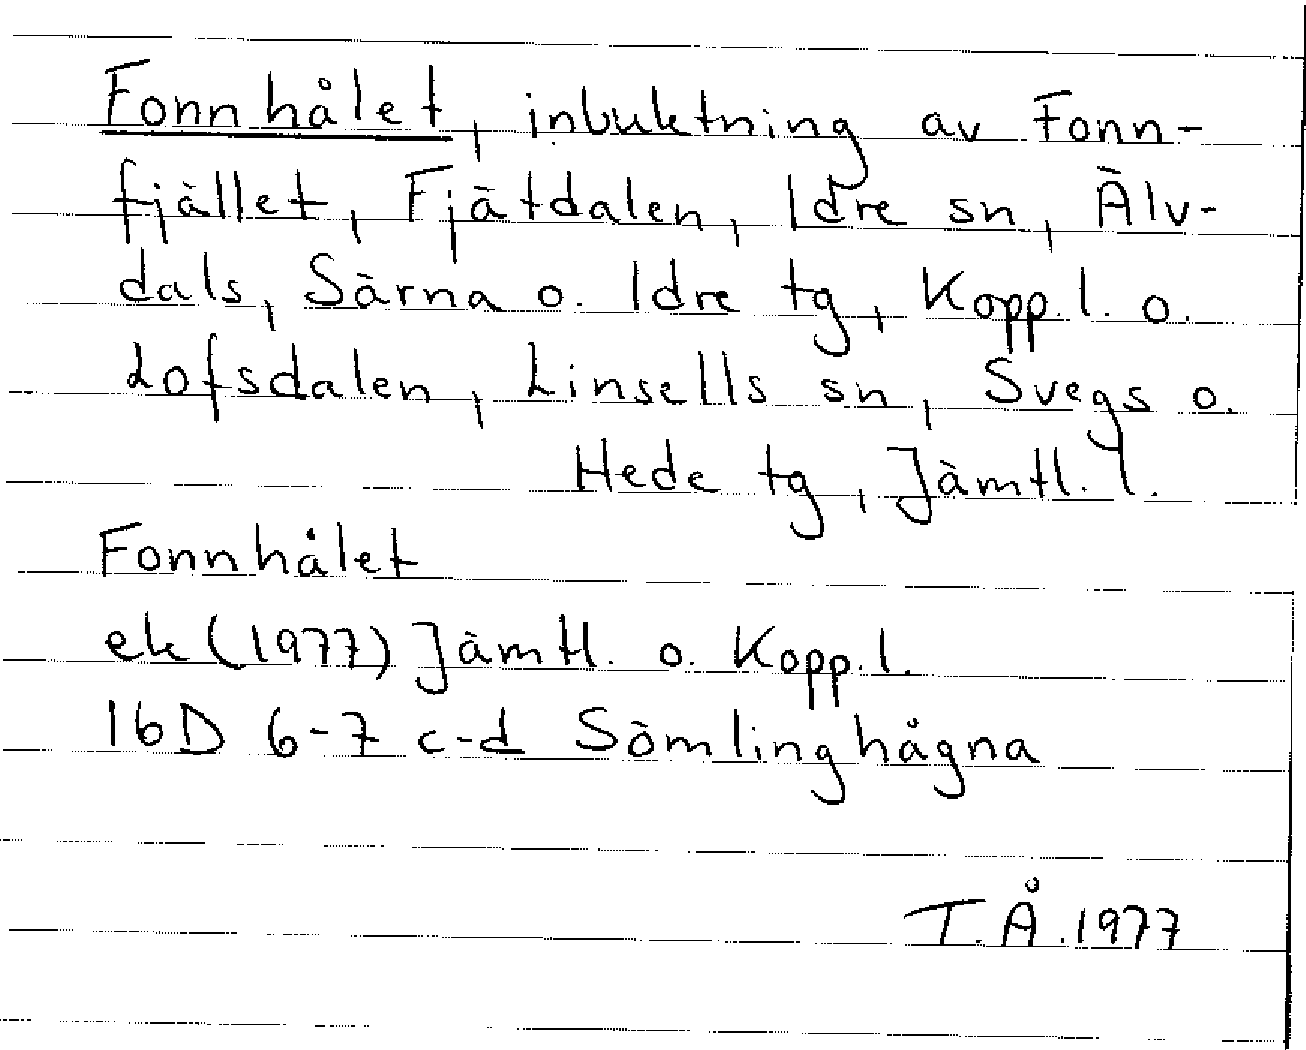 Fonnhålet, inbuktning av Fonn-
fjället, Fjätdalen, Idre sn, Älv-
dals, Särna o. Idre tg, Kopp.l. o.
Lofsdalen, Linsells sn, Svegs o.
Hede tg, Jämtl. l.
Fonnhålet
ek (1977) Jämtl. o. Kopp.l.
16D 6-7 c-d Sömlinghågna
T.Å. 1977